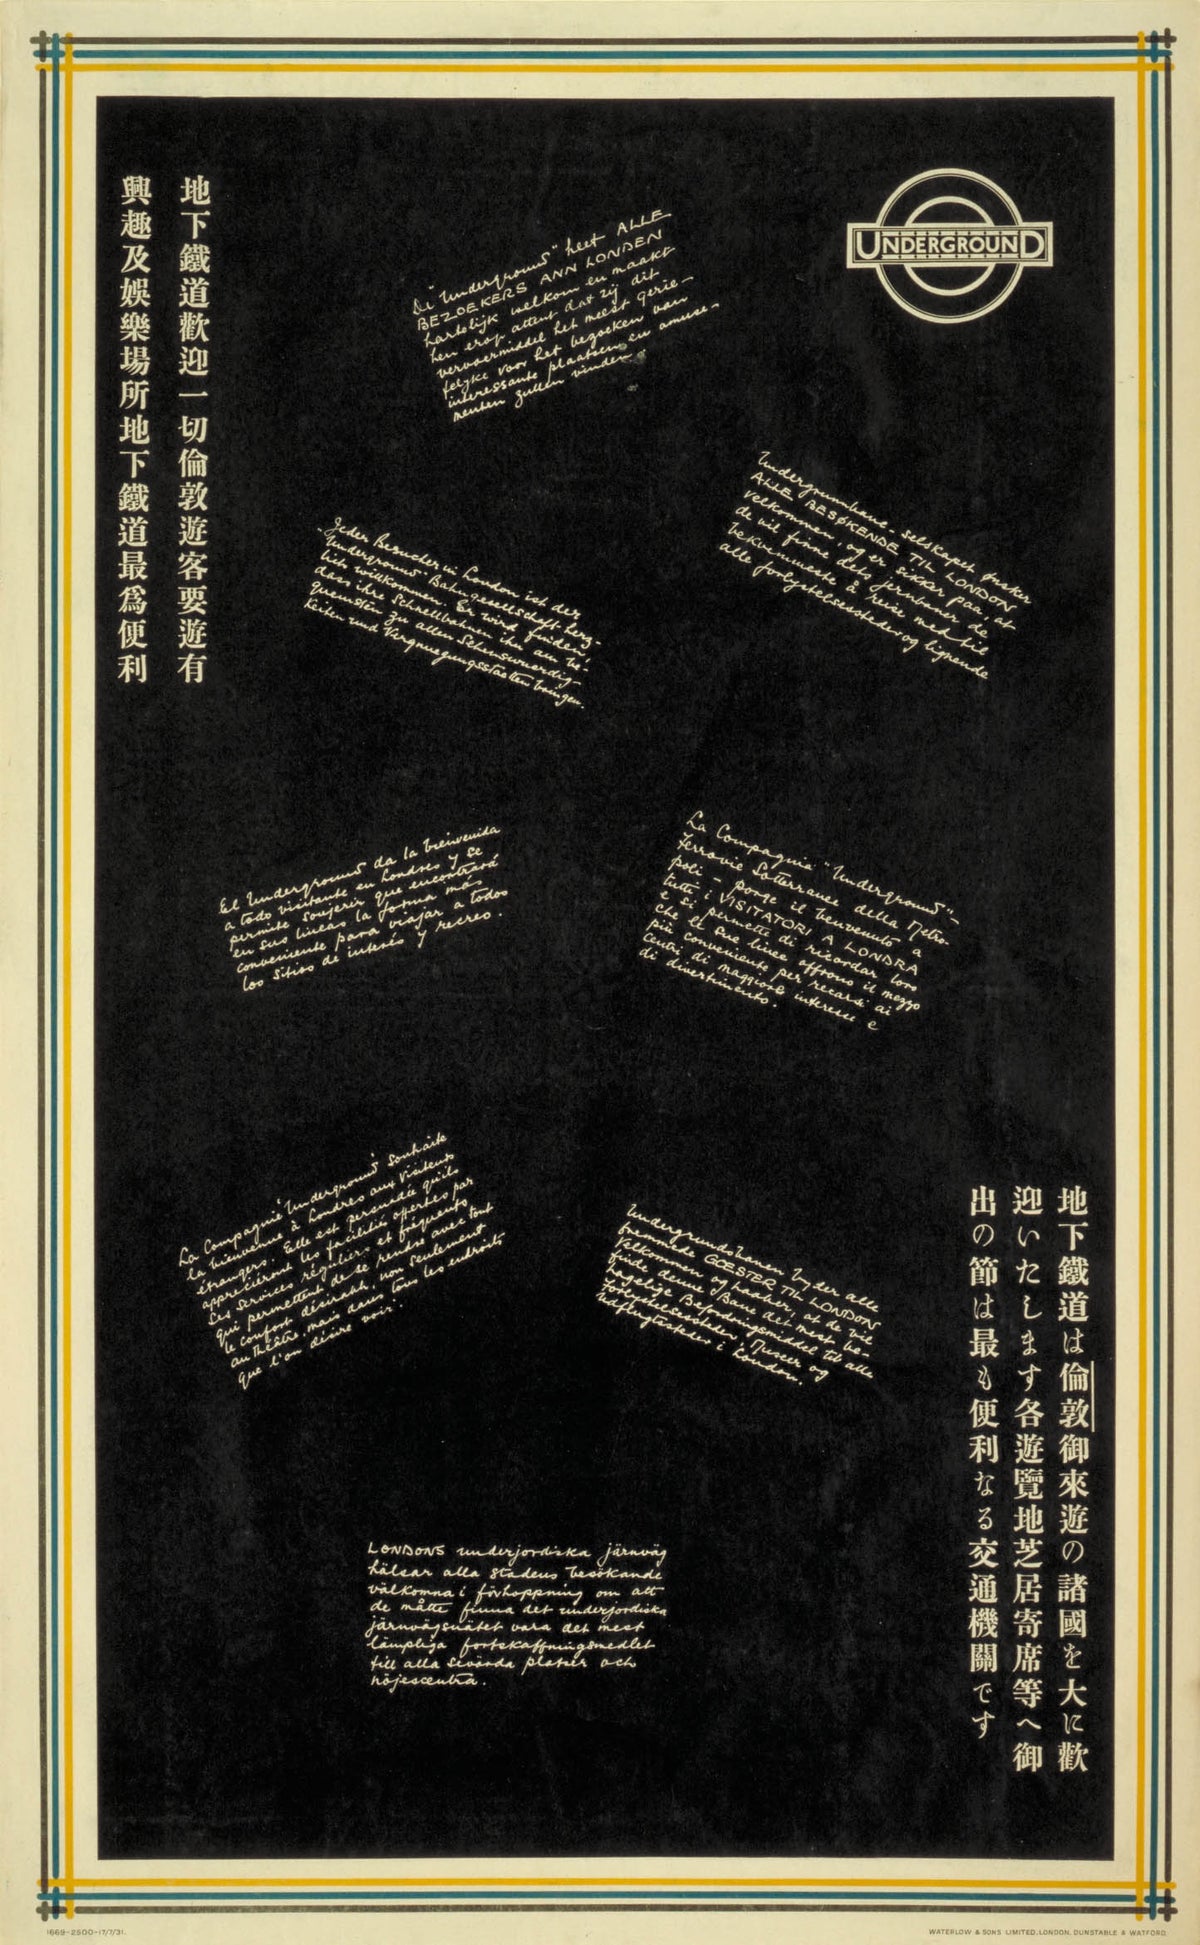 地下鐵道歡迎一切倫敦遊客要遊有
興趣及娛樂場所地下鐵道最爲便利
UNDERGROUND
Di "Underground" heet ALLE
BEZOEKERS ANN LONDEN
hartelijk welkom en maakt
hen erop attent dat zij dit
vervoermiddel het meest gerie-
felyke voor het bezoeken van
interessante plaatsen en amuse-
menten zullen vinden
Undergrundbane-selskapet ønsker
ALLE BESØKENDE TIL LONDON
velkommen, og er sikker paa, at
de vil finne dets jernbaner de
bekvemmeste å reise med til
alle forlystelsessteder og lignende
Jeder Besucher in London ist der
Underground Bahngesellschaft herz-
lich willkommen. Er wird finden,
dass ihre Schnellbahnen ihn am be-
quemsten zu allen Sehenswuerdig-
keiten und Vergnuegungsstaetten bringen.
El Underground da la bienvenida
a todo visitante en Londres y se
permite sugerir que encontrará
en sus lineas la forma más
conveniente para viajar a todos
los sitios de interés y recreo.
La Compagnia "Underground"-
Ferrovie Sotterranee della Metro-
poli - porge il benvenuto a
tutti i VISITATORI A LONDRA
e si permette di ricordar loro
che le sue linee offrono il mezzo
più conveniente per recarsi ai
centri di maggiore interesse e
di divertimento.
La Compagnie Underground souhaite
la bienvenue à Londres aux Visiteurs
étrangers. Elle est persuadée qu'ils
apprécieront les facilités offertes par
ses services réguliers et fréquents
qui permettent de se rendre avec tout
le confort désirable, non seulement
au Théâtre, mais dans tous les endroits
que l'on désire voir.
Undergrundsbanen byder alle
fremmede GOESTER TIL LONDON
velkommen og paaker, at de vil
finde denne Bane det mest be-
kvemmelige Befordringsmiddel til alle
Forlystelsessteder, Museer og
Udflugtssteder i London.
地下鐵道は倫敦御來遊の諸國を大に歡
迎いたします各遊覽地芝居寄席等へ御
出の節は最も便利なる交通機關です
LONDONS underjordiska järnväg
hälsar alla stadens besökande
välkomna i förhoppning om att
de måtte finna det underjordiska
järnvägsnätet vara det mest
lämpliga fortskaffningsmedlet
till alla sevärda platser och
nöjescentra.
1669-2500-17/7/31.
WATERLOW & SONS LIMITED, LONDON, DUNSTABLE & WATFORD.